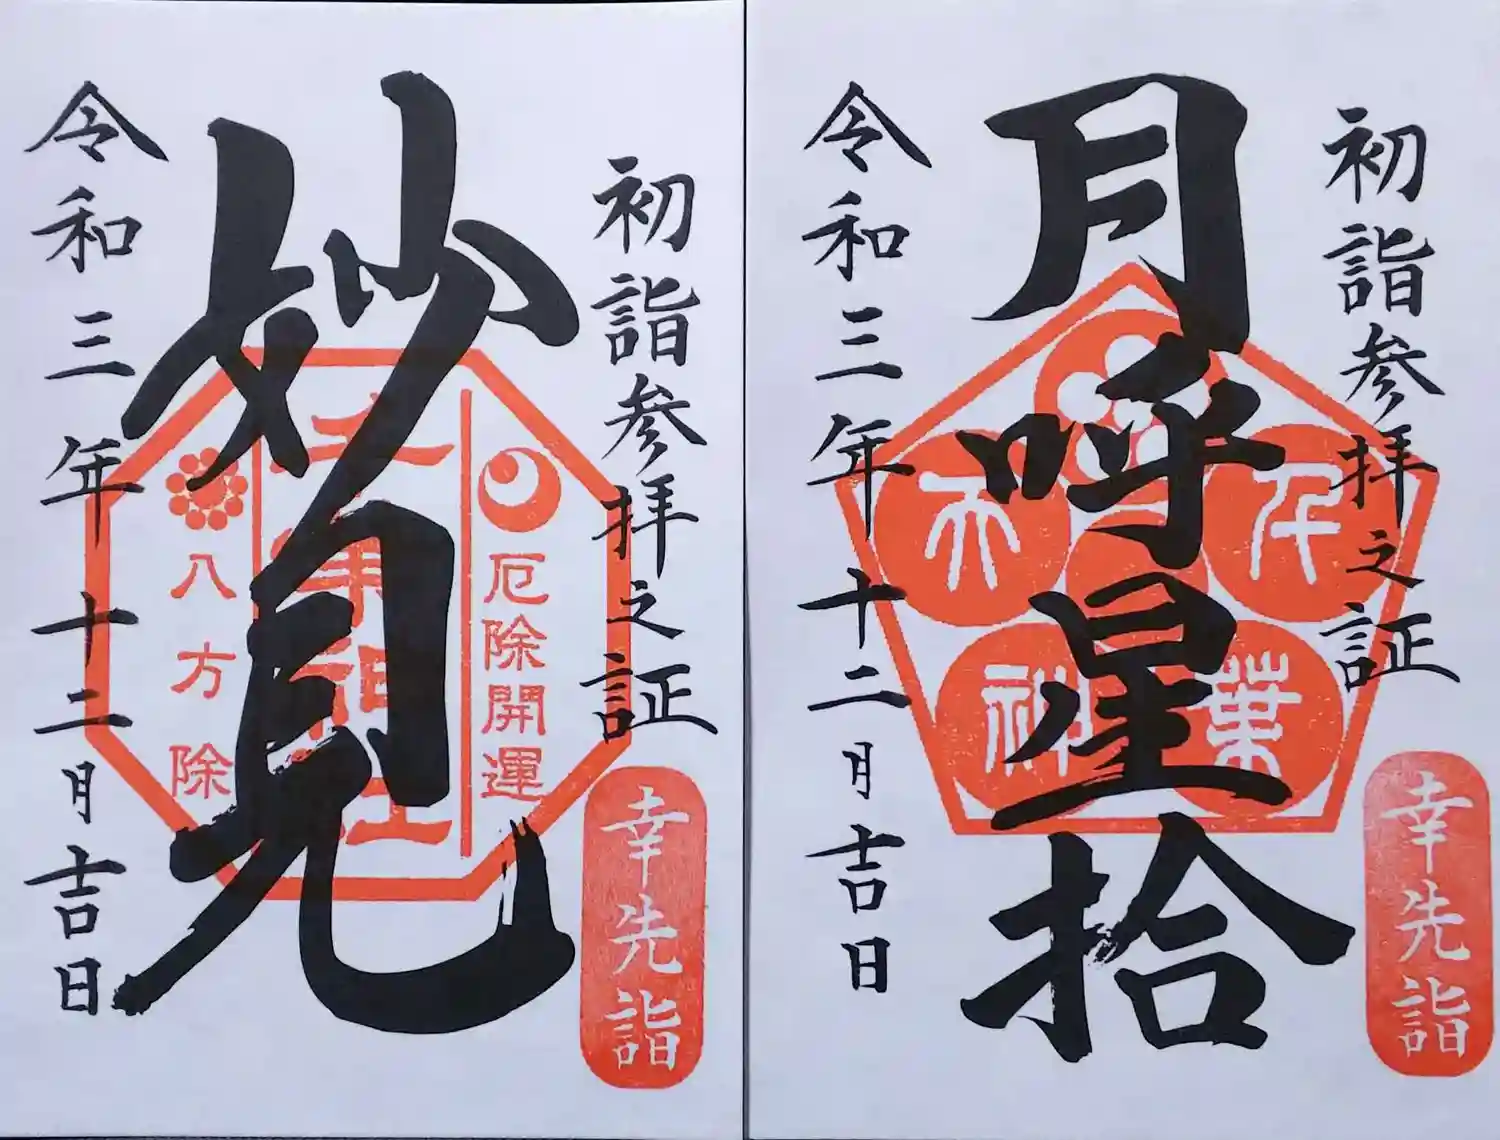 初詣参拝之証
月呼星拾
令和三年十二月吉日
幸先詣
初詣参拝之証
妙見
令和三年十二月吉日
厄除開運
八方除
幸先詣